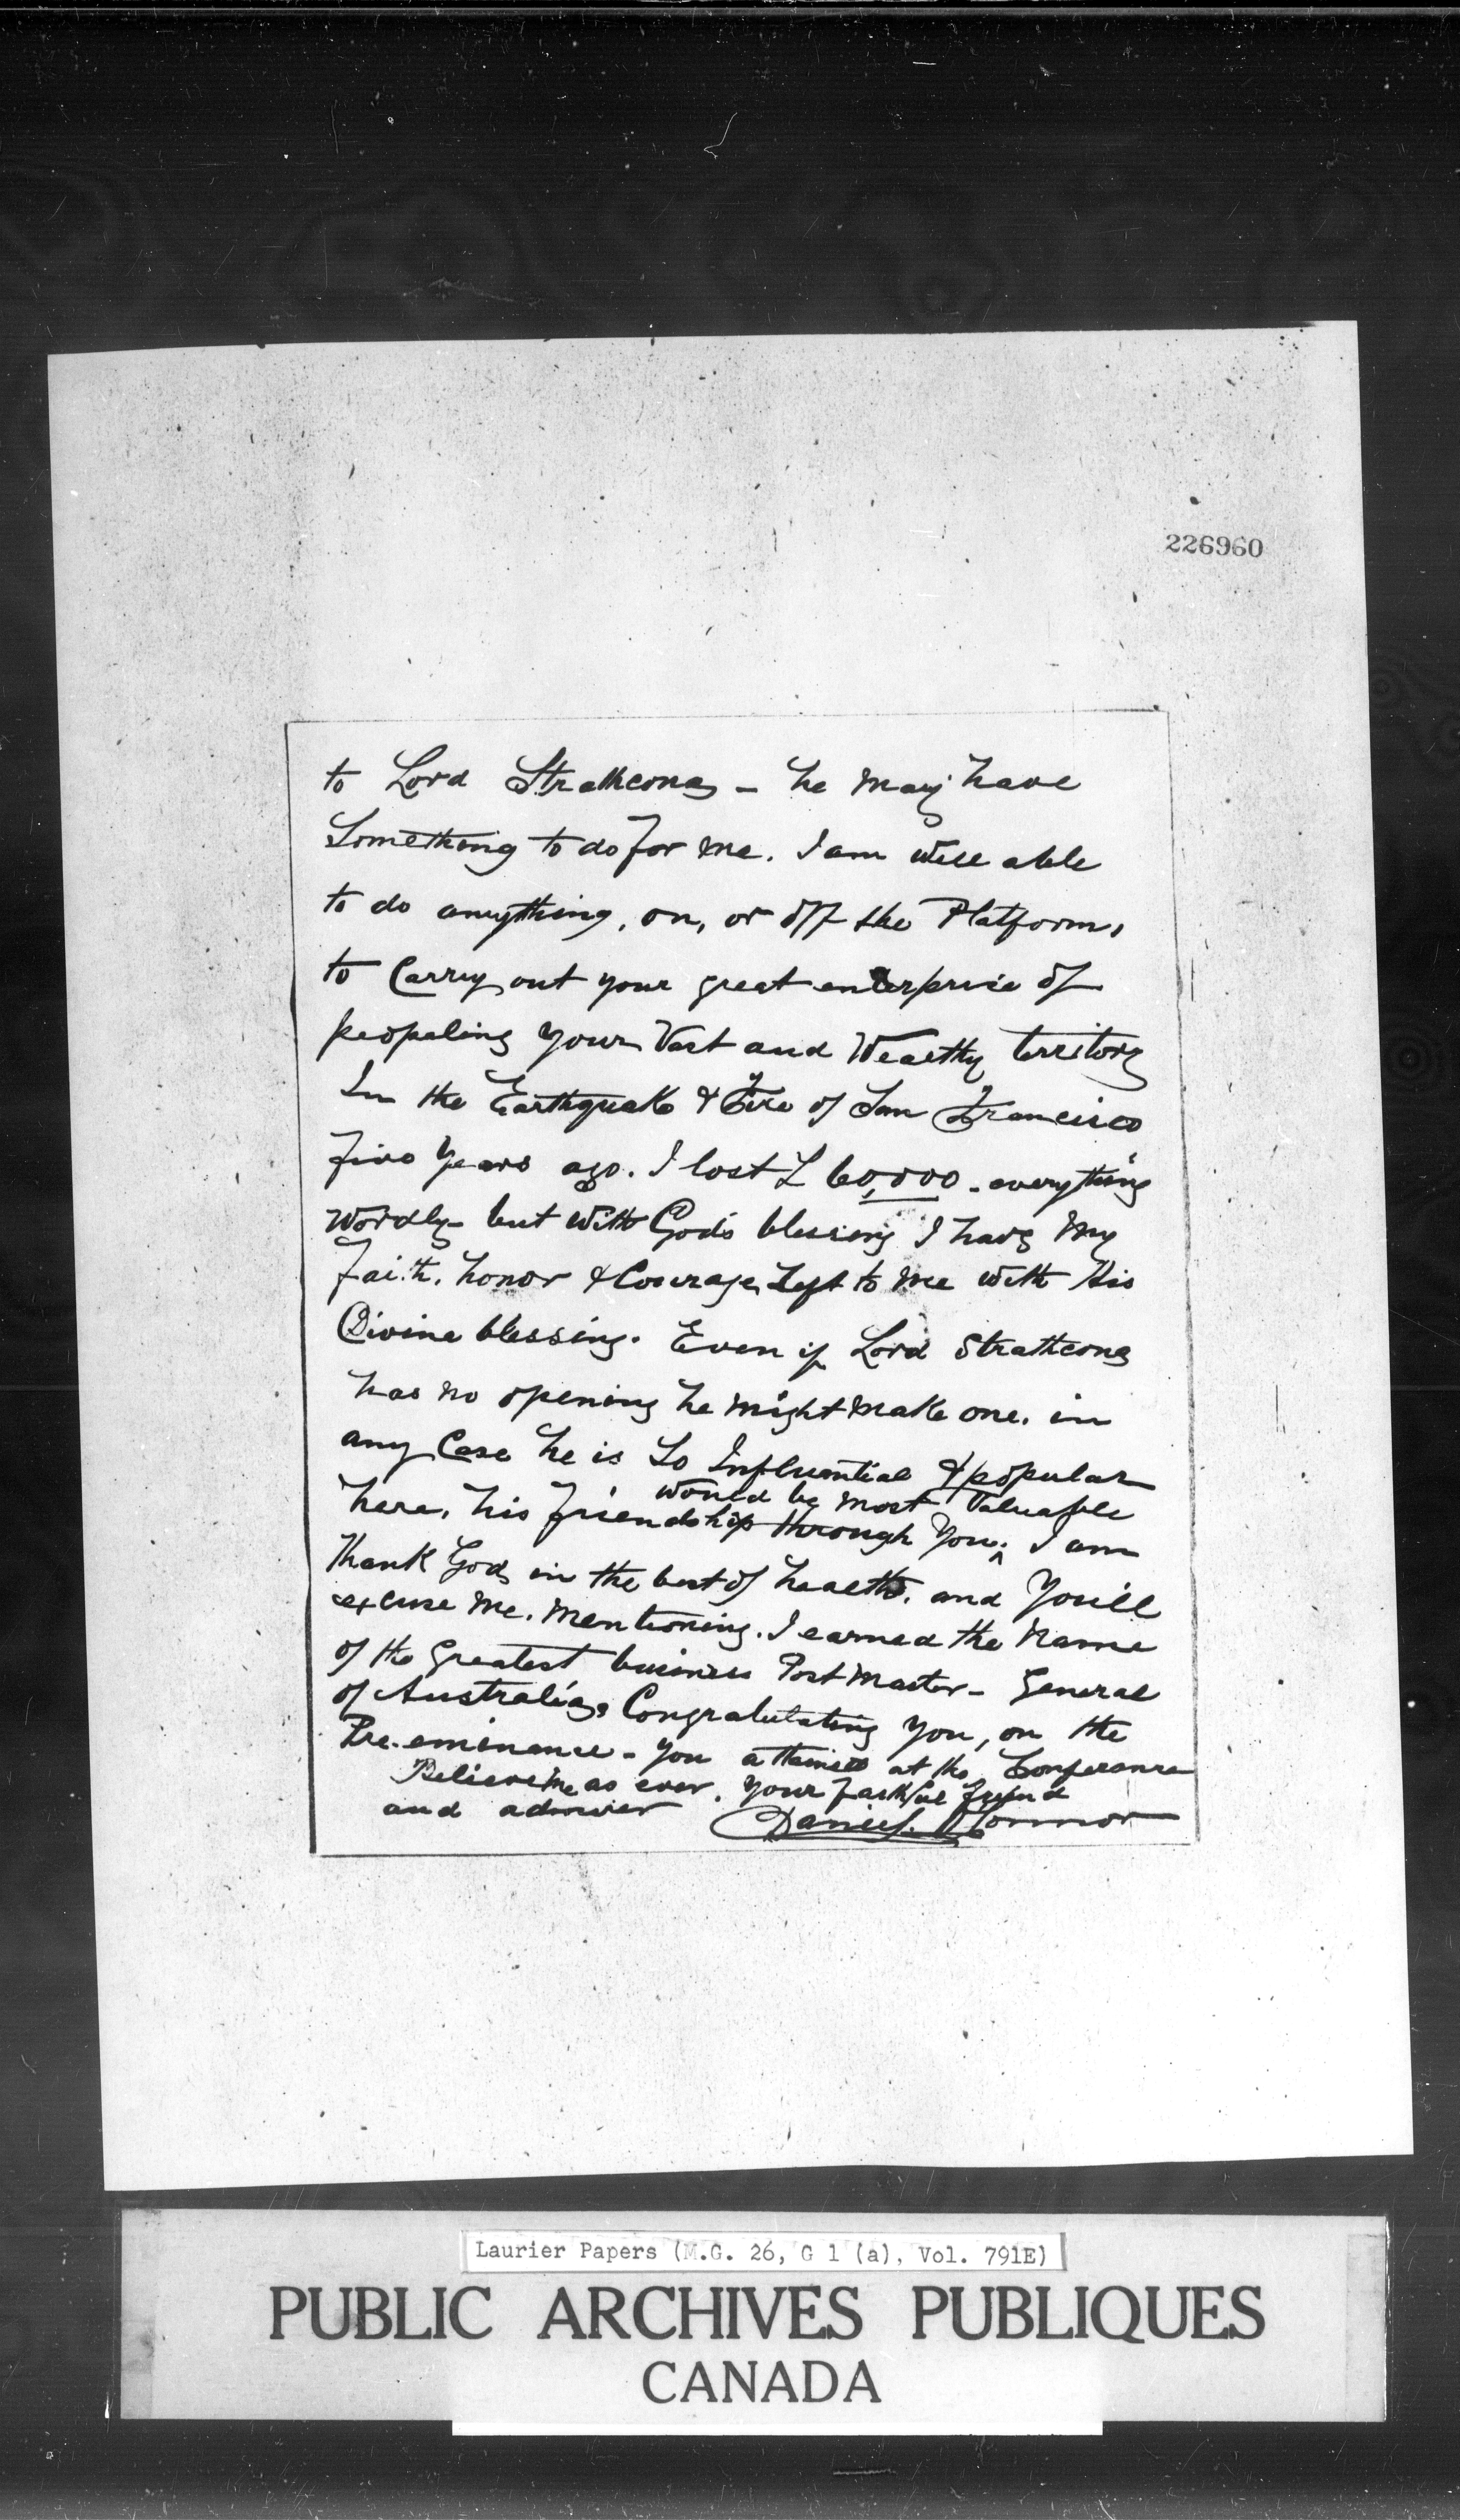 226960
to Lord Strathcona - he may have
Something to do for me. I am well able
to do anything, on, or off the Platform,
to Carry out your great enterprise of
peopeling your Vast and Wealthy territory
In the Earthquake & Fire of San Francisco
five years ago. I lost £ 60,000 - everything
Wordly - but with God's blessing I have my
faith, honor & Courage left to me with His
Divine blessing. Even if Lord Strathcona
has no opening he might make one. in
any Case he is So Influential & popular
here, his friendship through you, would be most Valuable I am
thank God, in the best of health, and You'll
excuse me. mentioning. I earned the name
of the Greatest business Post Master - General
of Australia. Congratulating you, on the
Pre-eminence - you attained at the Conference
Believe me as ever. your faithful friend
and admirer Daniel. O'Connor
Laurier Papers (M.G. 26, G 1 (a), Vol. 791E)
PUBLIC ARCHIVES PUBLIQUES
CANADA